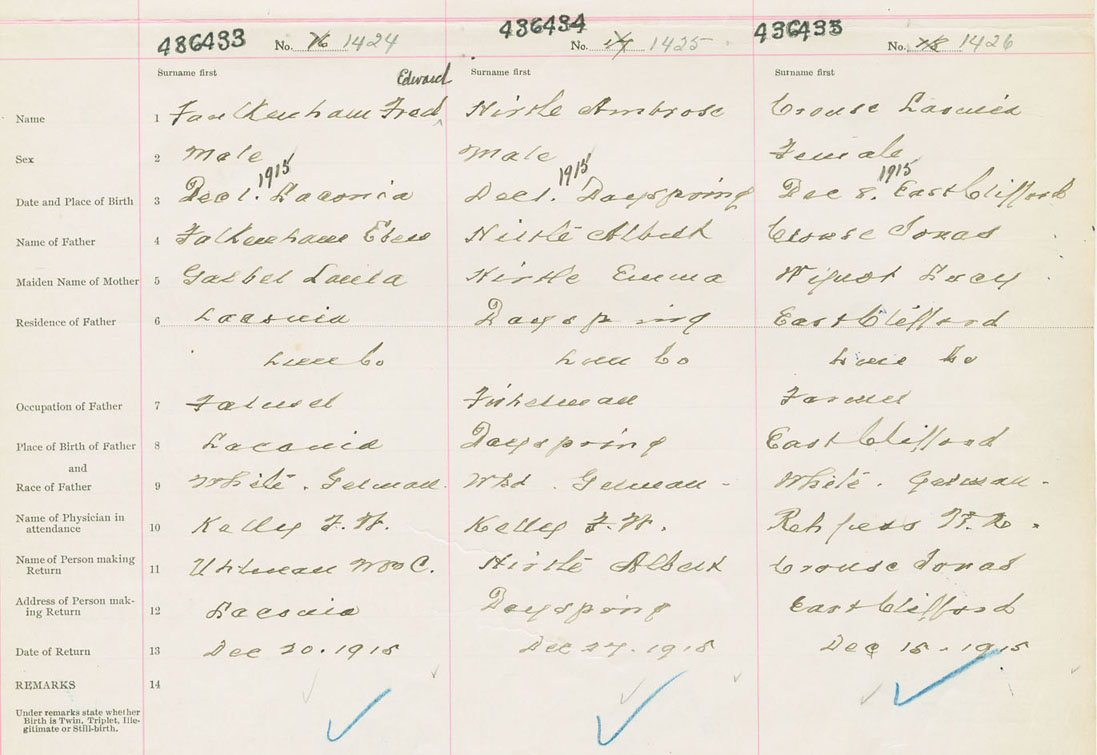 436433 No. 76 1424 436434 No. 77 1425 436435 No. 78 1426
Surname first Edward Surname first Surname first
Name 1 Faulkenham Fred Hirtle Ambrose Crouse Lavinia
Sex 2 Male Male Female
Date and Place of Birth 3 Dec 1. 1915 Laconia Dec 1. 1915 Dayspring Dec 8. 1915 East Clifford
Name of Father 4 Falkenham Eben Hirtle Albert Crouse Jonas
Maiden Name of Mother 5 Louisa Hirtle Emma Lucy
Residence of Father 6 Laconia Dayspring East Clifford
Lun Co Lun Co Lun Co
Occupation of Father 7 Farmer Fisherman Farmer
Place of Birth of Father 8 Laconia Dayspring East Clifford
and
Race of Father 9 White. German. Wht. German - White. German -
Name of Physician in
attendance 10 Kelley F. W. Kelley F. W. Rehfuss W. N.
Name of Person making
Return 11 Uhlman Wm C. Hirtle Albert Crouse Jonas
Address of Person mak-
ing Return 12 Laconia Dayspring East Clifford
Date of Return 13 Dec 20. 1915 Dec 27. 1915 Dec 15. 1915
REMARKS 14
Under remarks state whether
Birth is Twin, Triplet, Ille-
gitimate or Still-birth.